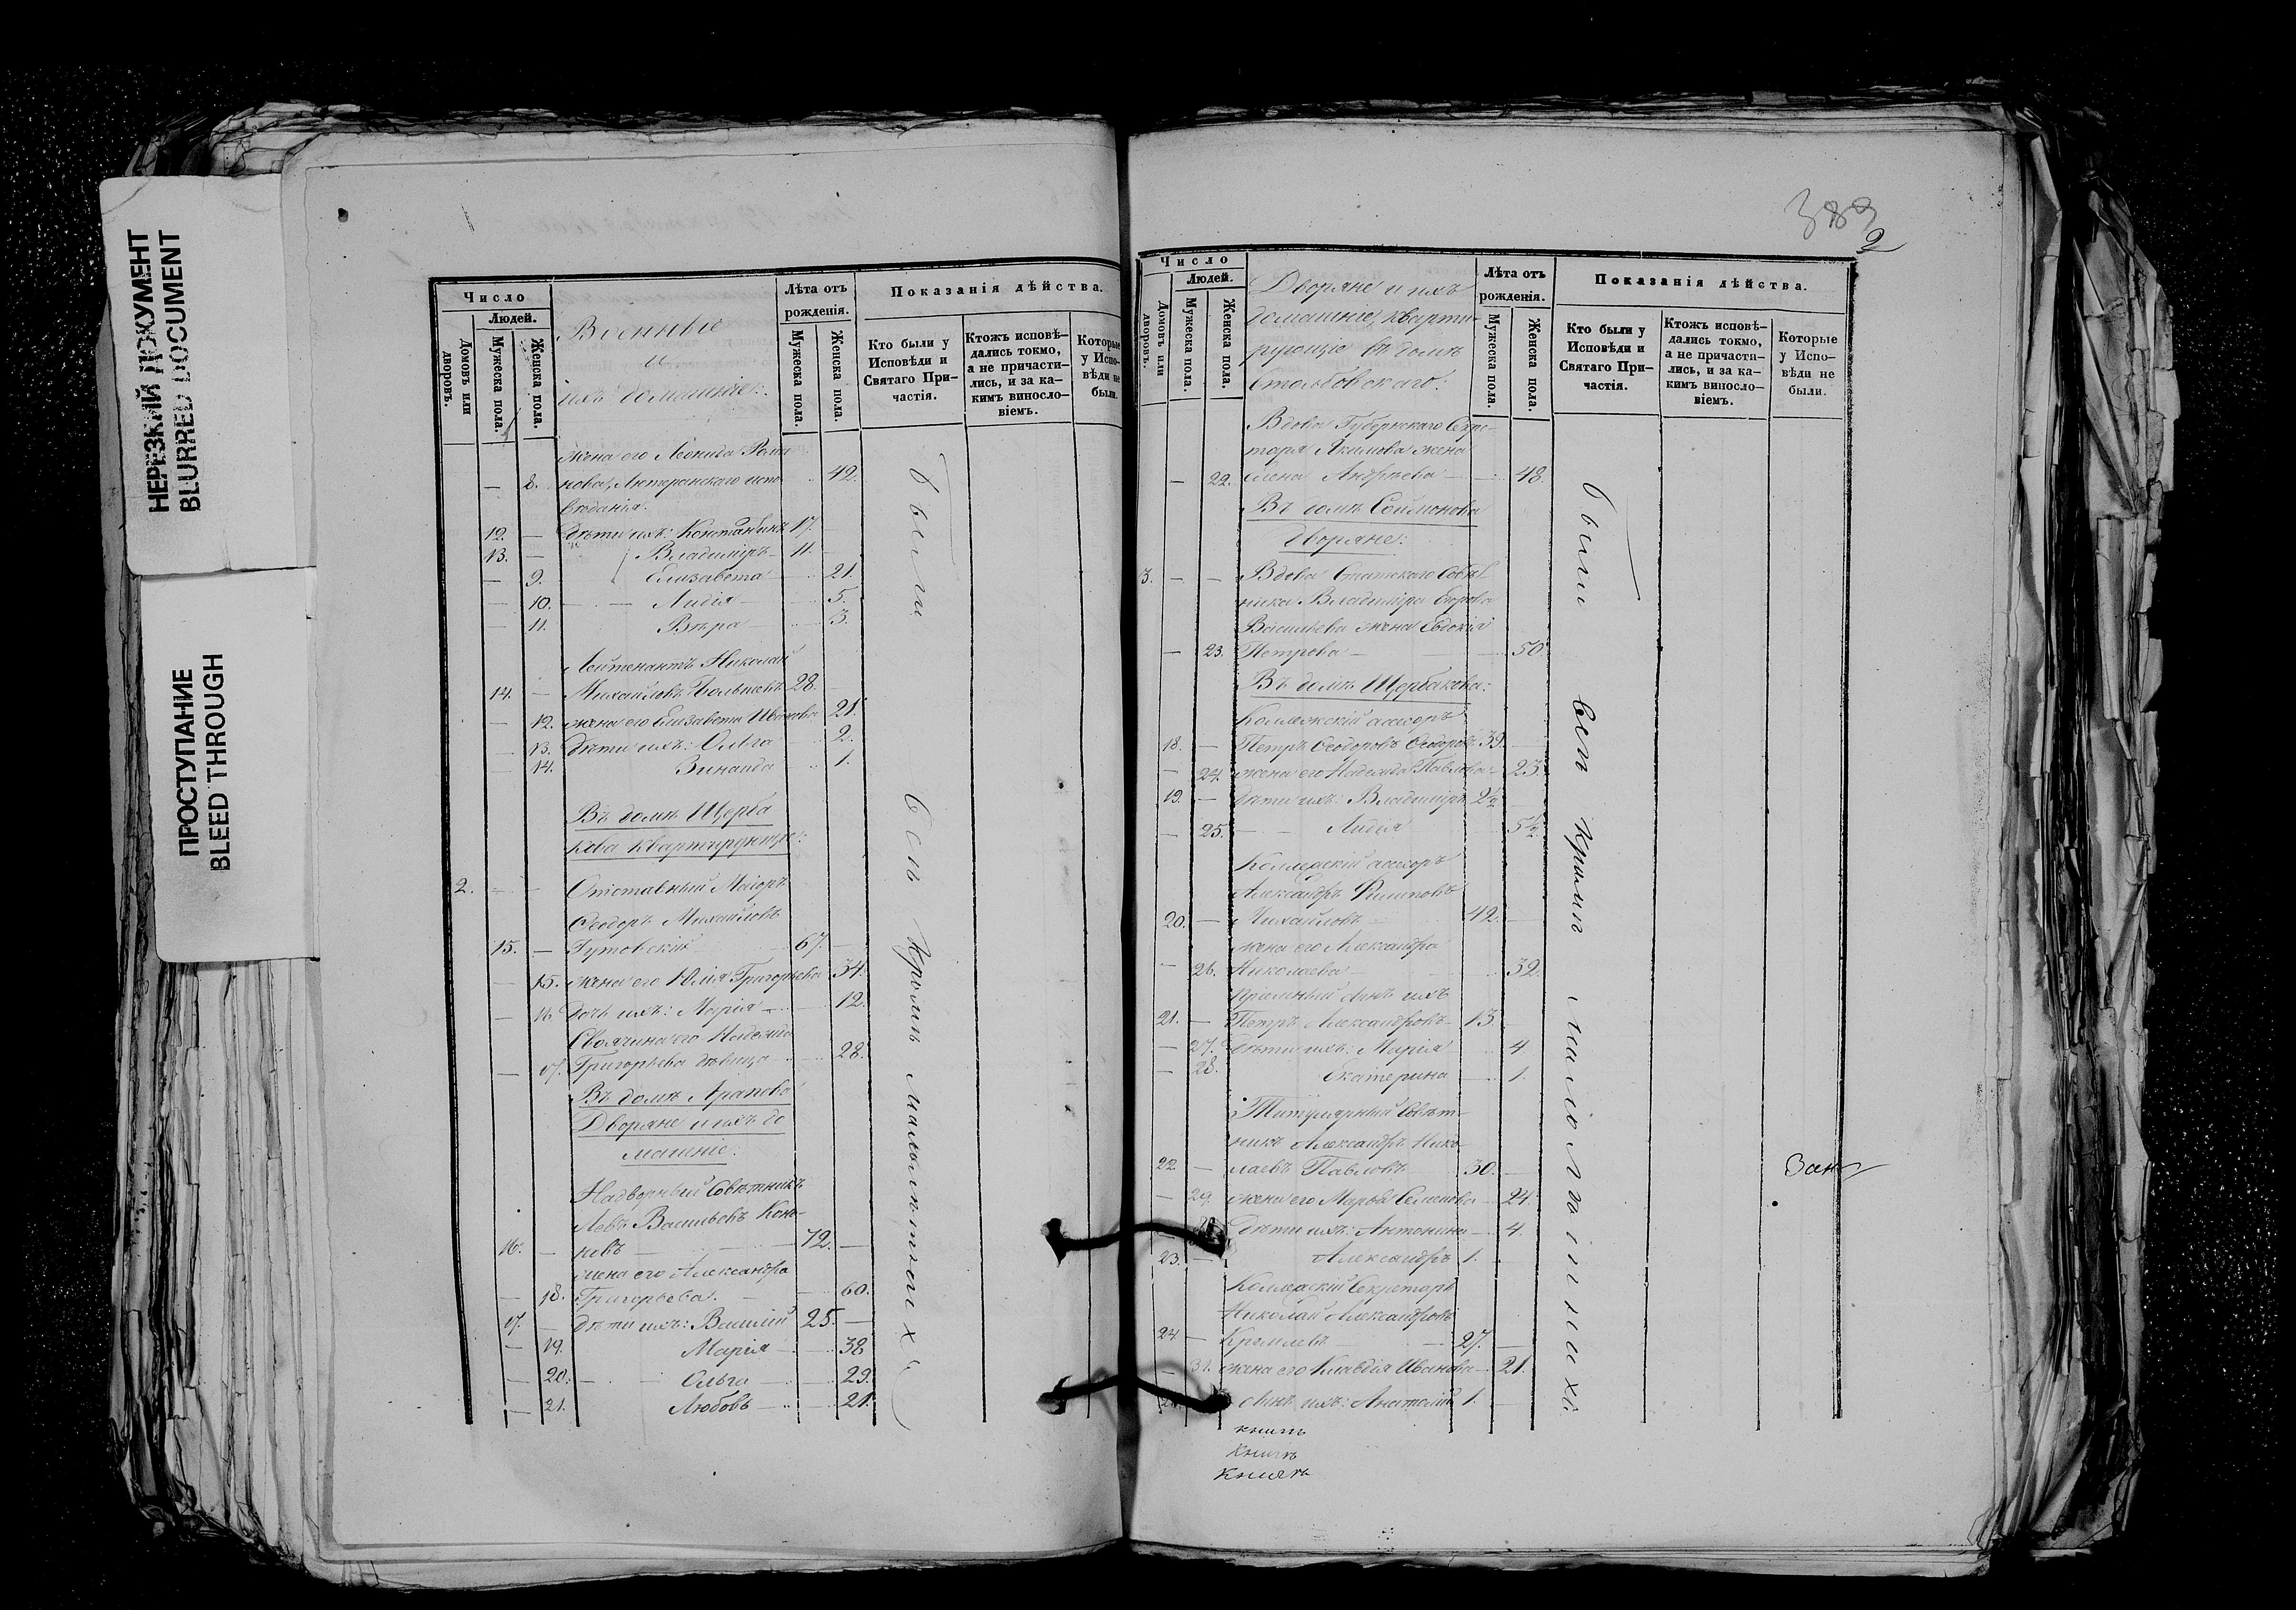 НЕРЕЗКИЙ ДОКУМЕНТ
BLURRED DOCUMENT
ПРОСТУПАНИЕ
BLEED THROUGH
Число
Людей.
Домовъ или дворовъ.
Мужеска пола.
Женска пола.
Военные
и
ихъ домашніе:
Лѣта отъ рожденія.
Мужеска пола.
Женска пола.
Показанія дѣйства.
Кто были у Исповѣди и Святаго Причастія.
Ктожъ исповѣдались токмо, а не причастились, и за какимъ винословіемъ.
Которые у Исповѣди не были.
жена его Леонида Рома
8. нова, Лютеранскаго испо 42.
вѣданія.
12. — дѣти ихъ: Константинъ 17.
13. — Владиміръ 11.
— 9. Елизавета 21.
— 10. Лидія 5.
— 11. Вѣра 3.
Лейтенантъ Николай
14. — Михайловъ 28.
— 12. жена его Елизавета Иванова 21.
— 13. дѣти ихъ: Ольга 2.
— 14. Зинаида 1.
Въ домѣ Щерба
кова квартирующіе:
2. — — Отставный Маіоръ
Ѳеодоръ Михайловъ
15. — Гутовскій 67.
— 15. жена его Юлія Григорьева 34.
— 16. дочь ихъ: Марія 12.
Своячина его Надежда
— 17. Григорьева дѣвица 28.
Въ домѣ Арапова
Дворяне и ихъ до
машніе:
Надворный Совѣтникъ
Левъ Васильевъ Коно-
16. — новъ 72. —
жена его Александра
— 18. Григорьева. 60.
17. — дѣти ихъ: Василій 25. —
— 19. Марія 38
— 20. Ольга 29.
— 21. Любовь 21.
были всѣ кромѣ малолѣтныхъ
389
2
Число
Людей.
Домовъ или дворовъ.
Мужеска пола.
Женска пола.
Дворяне и ихъ
домашніе, кварти-
рующіе въ домѣ
Столбовскаго:
Лѣта отъ рожденія.
Мужеска пола.
Женска пола.
Показанія дѣйства.
Кто были у Исповѣди и Святаго Причастія.
Ктожъ исповѣдались токмо, а не причастились, и за какимъ винословіемъ.
Которые у Исповѣди не были.
Вдова Губернскаго Секре-
таря Якимова жена
— 22. Елена Андреева 48.
Въ домѣ Соймонова
Дворяне:
3. — — Вдова Статскаго Совѣт
ника Владиміра Егорова
Васильева жена Евдокія
— 23. Петрова 50.
Въ домѣ Щербакова:
Коллежскій ассесоръ
18. — Петръ Ѳеодоровъ Ѳеодоровъ 39.
— 24. жена его Надежда Павлова 23.
19. — дѣти ихъ: Владиміръ 2½
— 25. Лидія 5½
Коллежскій ассесоръ
Александръ Филиповъ
20. — Михайловъ 42.
жена его Александра
— 26. Николаева 32.
пріемный сынъ ихъ
21. — Петръ Александровъ 13.
— 27. дѣти ихъ: Марія 4.
— 28. Екатерина 1.
Титулярный Совѣт-
никъ Александръ Нико-
22. — лаевъ Павловъ 30.
— 29. жена его Марья Семенова 24.
дѣти ихъ: Антонина 4.
23. — Александръ 1.
Коллежскій Секретарь
Николай Александровъ
24 — Кремлевъ 27. —
— 31. жена его Клавдія Иванова 21.
сынъ ихъ: Анатолій 1.
были всѣ кромѣ малолѣтныхъ